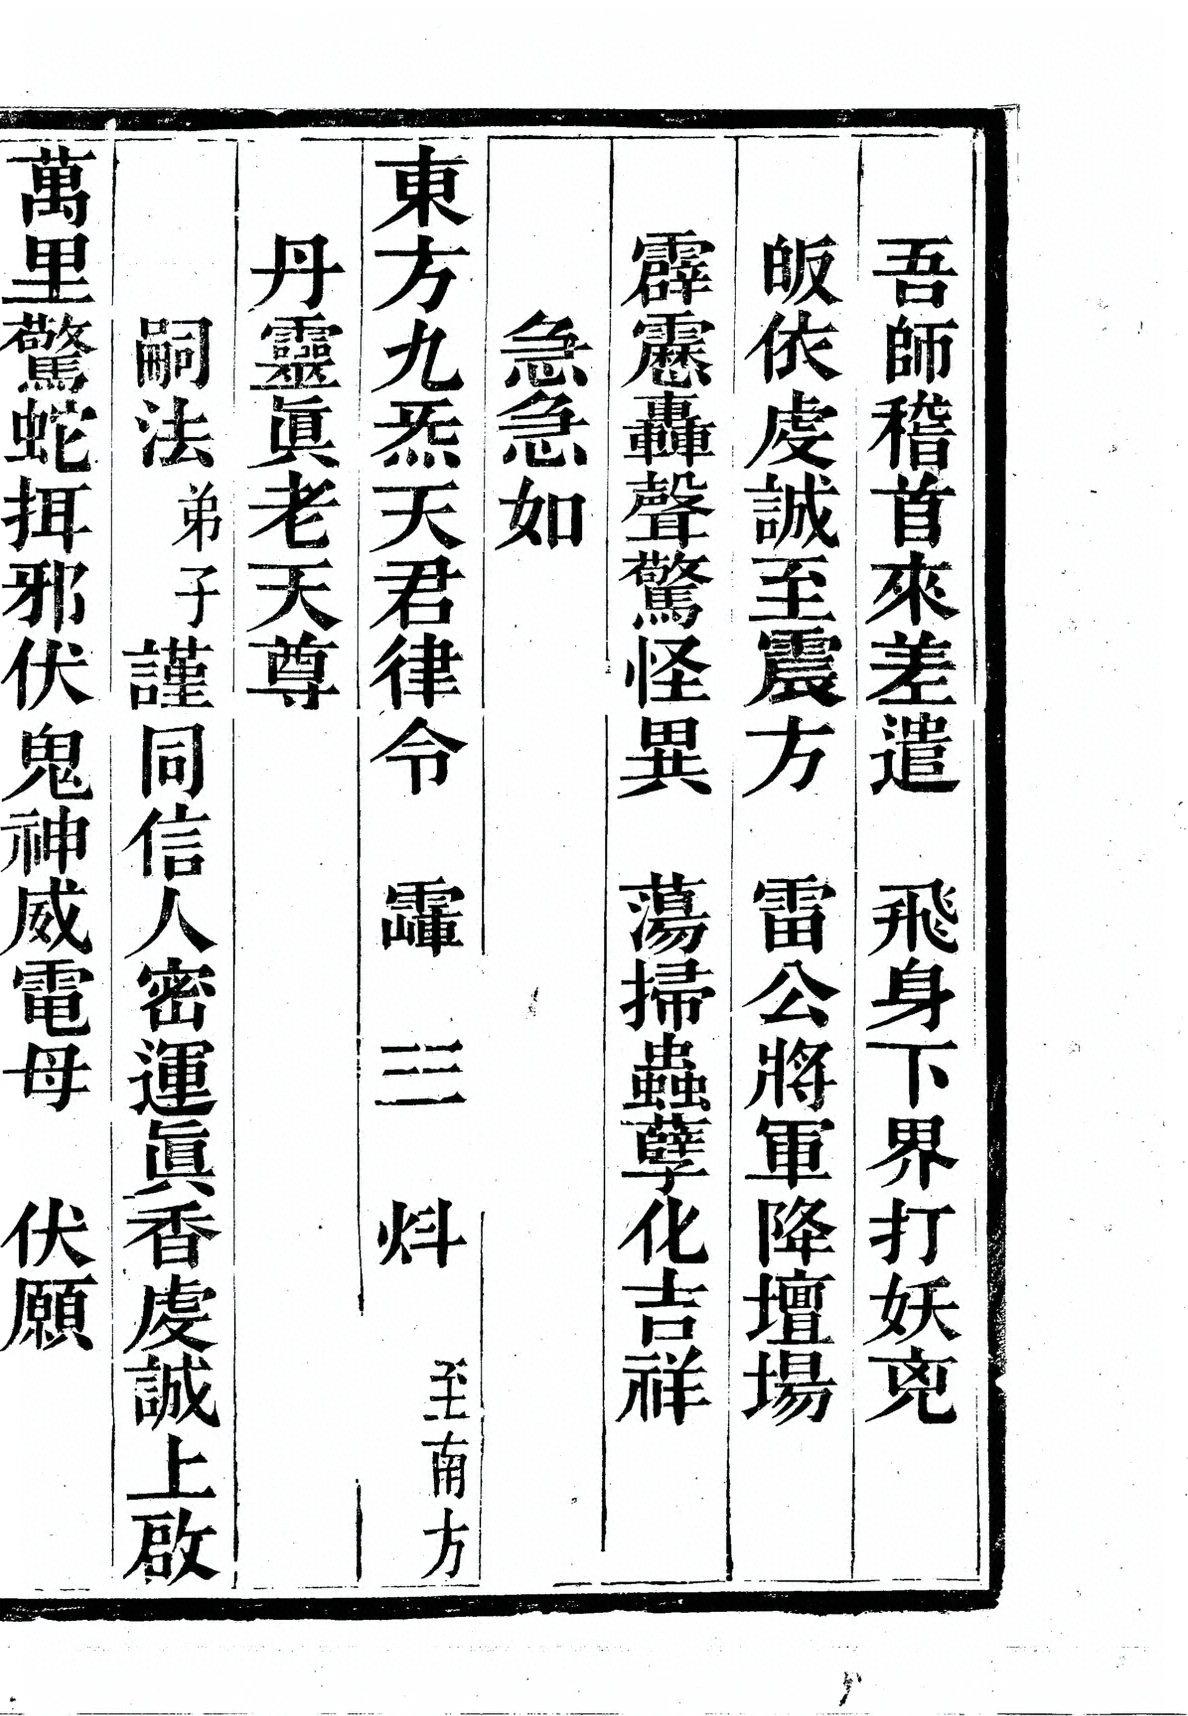 吾師稽首來差遣　飛身下界打妖兇
皈依虔誠至震方　雷公將軍降壇場
霹靂轟聲驚怪異　蕩掃蟲孽化吉祥
急急如
東方九炁天君律令　䨻　三三　炓　至南方
丹靈眞老天尊
嗣法弟子謹同信人密運眞香虔誠上啟
萬里驚蛇挕邪伏鬼神威電母　伏願